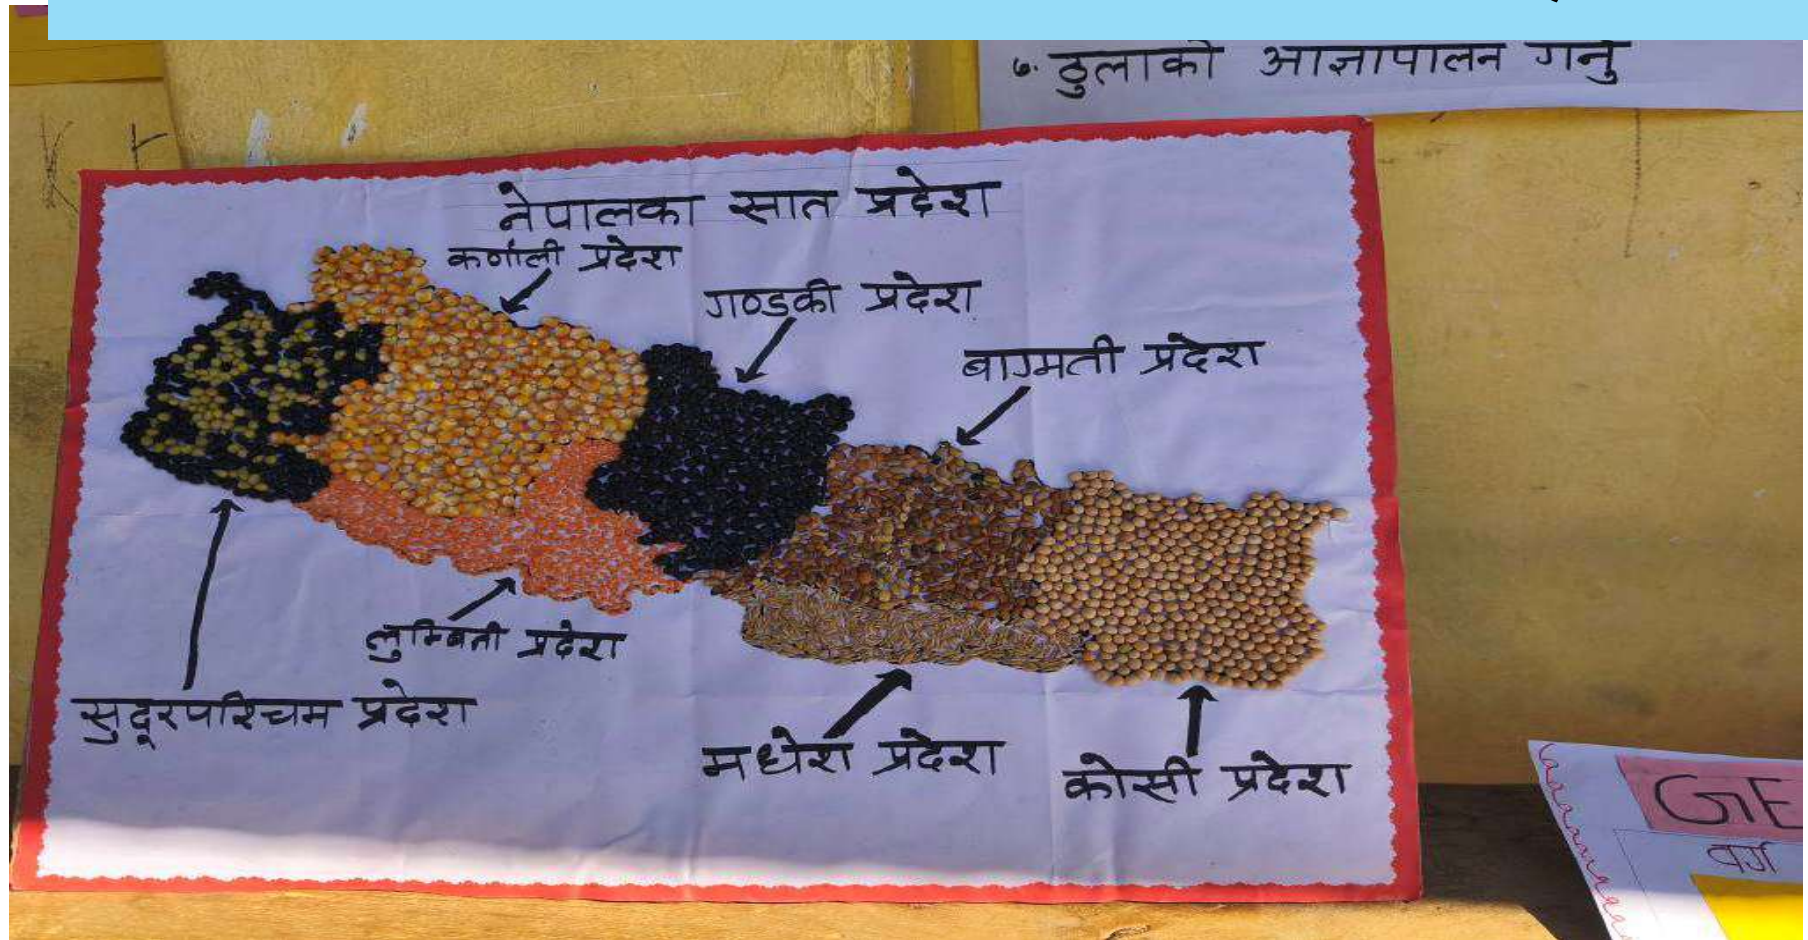 ७. ठुलाको आज्ञापालन गर्नु
नेपालका सात प्रदेश
कर्णाली प्रदेश
गण्डकी प्रदेश
बाग्मती प्रदेश
लुम्बिनी प्रदेश
सुदूरपश्चिम प्रदेश
मधेश प्रदेश
कोसी प्रदेश
GE
वर्ग